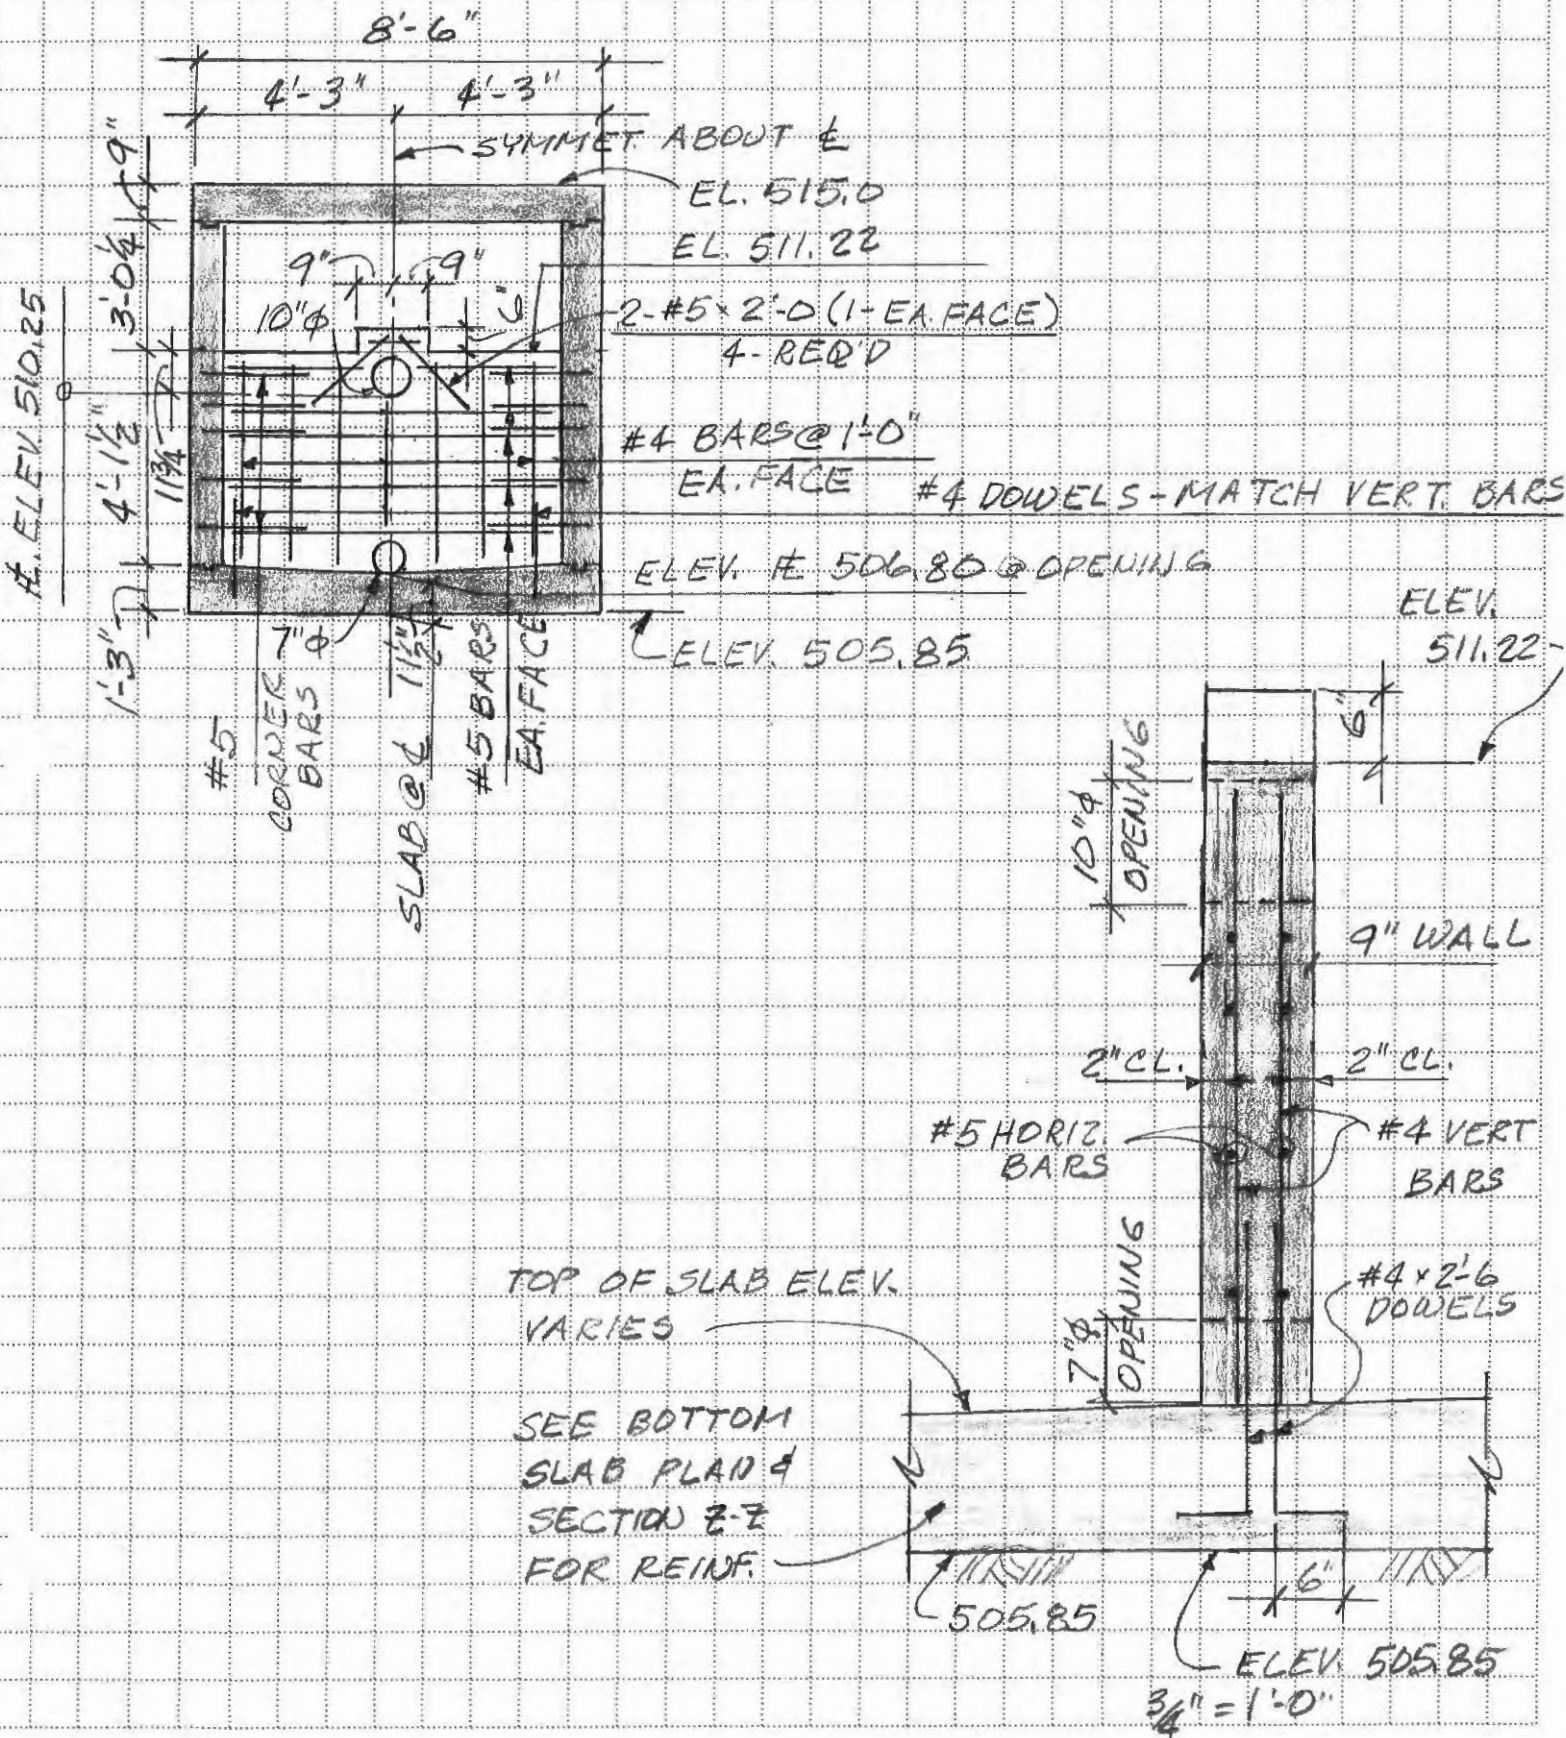 8'-6"
4'-3" 4'-3"
SYMMET. ABOUT ℄
EL. 515.0
EL. 511.22
9"
3'-0¼"
4'-1½"
11¾"
1'-3"
ELEV 510.25
9" 9"
10"φ
6"
2-#5 × 2'-0 (1-EA. FACE)
4-REQ'D
#4 BARS @ 1'-0"
EA. FACE
#4 DOWELS-MATCH VERT. BARS
ELEV. 506.80 @ OPENING
ELEV. 505.85
7"φ
#5
CORNER
BARS
SLAB @ ℄ 11½"
#5 BARS
EA. FACE
ELEV.
511.22
6"
10"φ
OPENING
9" WALL
2" CL. 2" CL.
#5 HORIZ.
BARS
#4 VERT
BARS
7"φ
OPENING
#4 × 2'-6
DOWELS
TOP OF SLAB ELEV.
VARIES
SEE BOTTOM
SLAB PLAN &
SECTION Z-Z
FOR REINF.
505.85
6"
ELEV. 505.85
¾" = 1'-0"